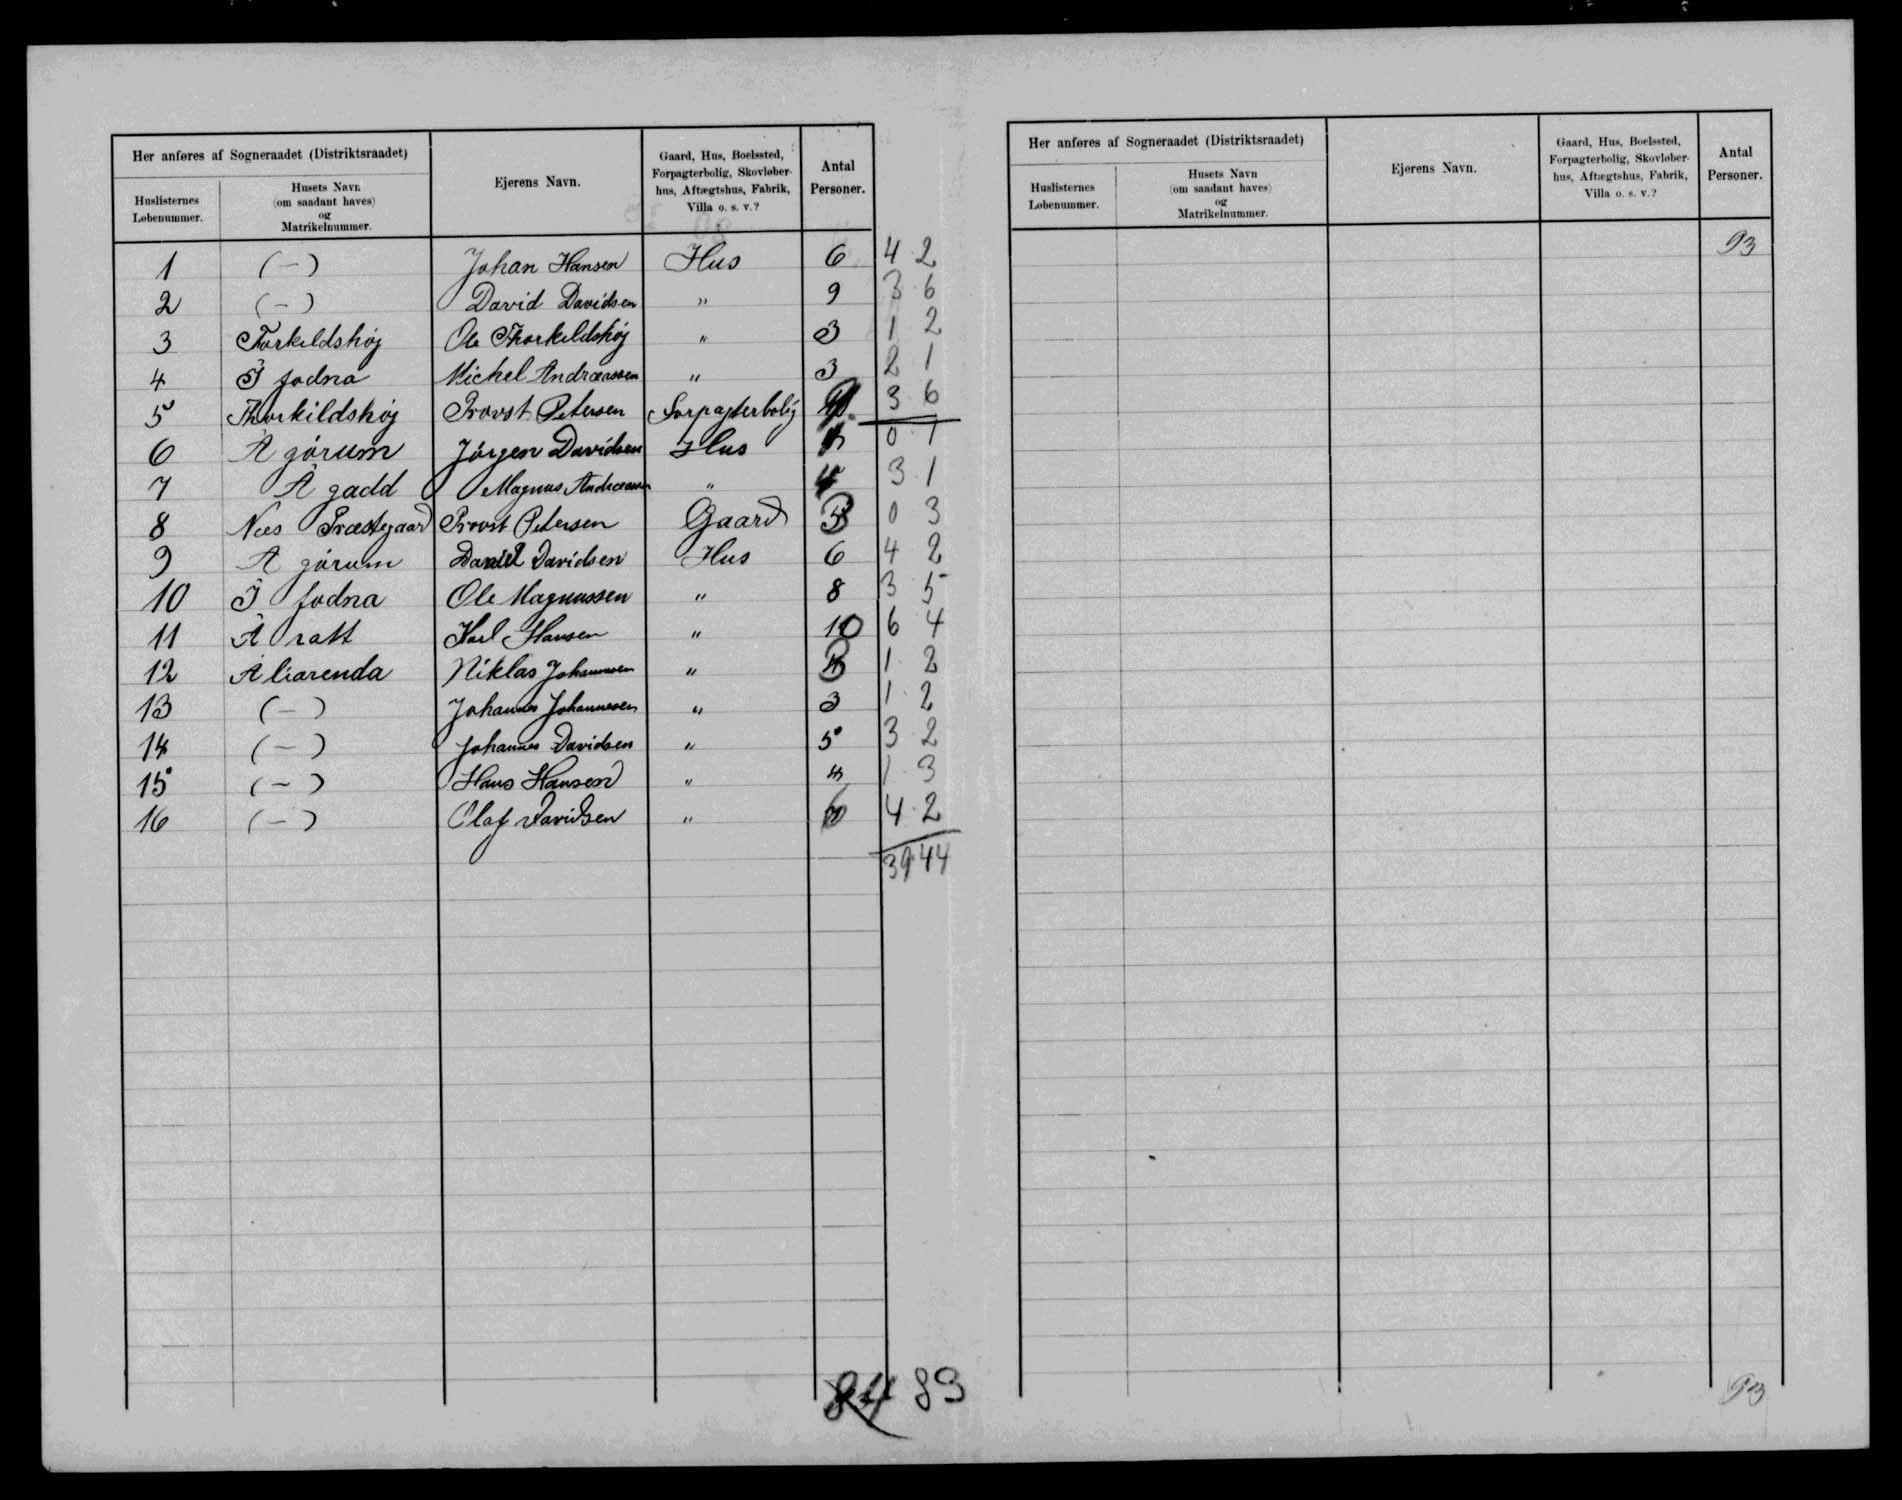 Her anføres af Sogneraadet (Distriktsraadet)
Huslisternes Løbenummer.
Husets Navn (om saadant haves) og Matrikelnummer.
Ejerens Navn.
Gaard, Hus, Boelssted, Forpagterbolig, Skovløberhus, Aftægtshus, Fabrik, Villa o. s. v.?
Antal Personer.
1 (-) Johan Hansen Hus 6 4 2
2 (-) David Davidsen " 9 3 6
3 Torkildshøj Ole Thorkildshøj " 3 1 2
4 Í fodna Michel Andreassen " 3 2 1
5 Thorkildshøj Provst Petersen Forpagterbolig 3 6
6 Á górum Jørgen Davidsen Hus 0 1
7 Á gadd Magnus Andreassen " 4 3 1
8 Næs Præstegaard Provst Petersen Gaard 3 0 3
9 Á górum Daniel Davidsen Hus 6 4 2
10 Í fodna Ole Magnussen " 8 3 5
11 Á ratt Karl Hansen " 10 6 4
12 Á liarenda Niklas Johannesen " 3 1 2
13 (-) Johannes Johannesen " 3 1 2
14 (-) Johannes Davidsen " 5 3 2
15 (-) Hans Hansen " 4 1 3
16 (-) Olaf Davidsen " 6 4 2
39 44
84 83
Her anføres af Sogneraadet (Distriktsraadet)
Huslisternes Løbenummer.
Husets Navn (om saadant haves) og Matrikelnummer.
Ejerens Navn.
Gaard, Hus, Boelssted, Forpagterbolig, Skovløberhus, Aftægtshus, Fabrik, Villa o. s. v.?
Antal Personer.
93
93